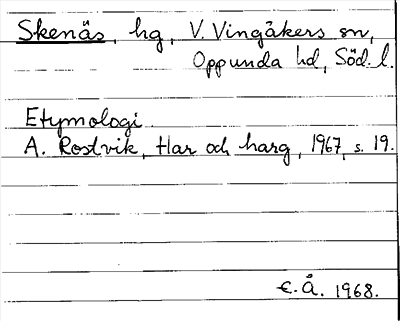 Skenäs, hg, V. Vingåkers sn,
Oppunda hd, Söd. l.
Etymologi
A. Rostvik, Har och harg, 1967, s. 19.
E.Å. 1968.